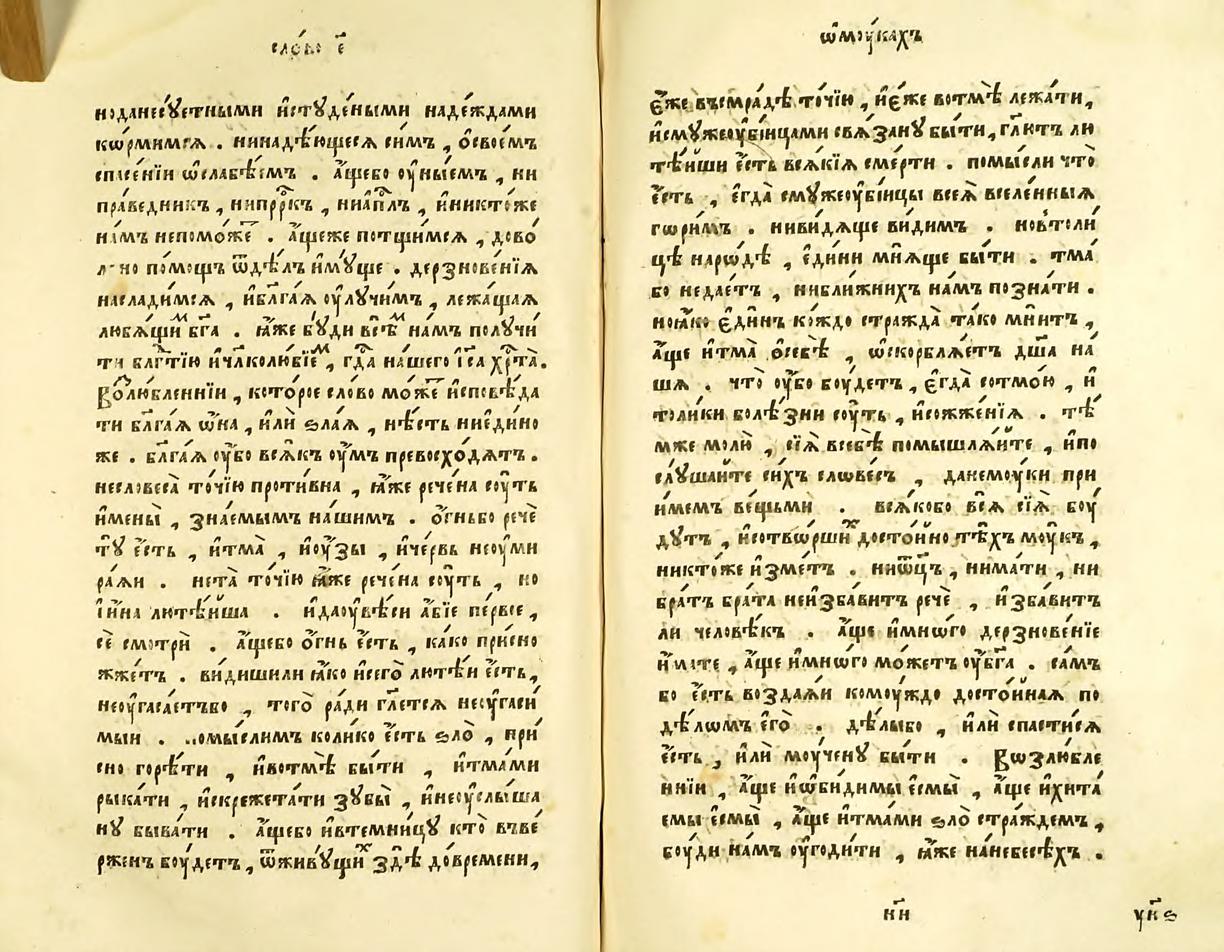 сло́во є҃
нѡданесꙋ́етными и҆стꙋде́ными наде́ждами
ко́рмимсѧ . нинадѣ́ющесѧ си́мъ , ѻ҆свое́мъ
спⷭ҇е́нїи ѡ҆слабѣ́емъ . а҆́щебо ᲂу҆ны́емъ , ни
пра́ведникъ , нипрⷪ҇ркъ , ниа҆пⷭ҇лъ , и҆никто́же
на́мъ непомо́же . а҆́щеже потщи́мсѧ , дово́
лно по́мощъ ѿдѣ́лъ и҆мꙋ́ще . дерзнове́нїѧ
наслади́мсѧ , и҆бл҃га́ѧ ᲂу҆лꙋчи́мъ , лежа́щаѧ
любѧ́щимъ бг҃а . ꙗ҆́же бꙋ́ди всѣ́мъ на́мъ получи́
ти блгⷣтїю и҆чл҃колю́бїемъ , гдⷭ҇а на́шего і҆с҃а хрⷭ҇та̀.
Воⷥлю́бленнїи , кото́рое сло́во мо́же и҆сповѣ́да
ти бл҃га́ѧ ѡ҆́на , и҆лѝ ѕла́ѧ , нѣ́сть ниеди́но
же . бл҃га́ѧ ᲂу҆́бо всѧ́къ ᲂу҆́мъ превосхо́дѧтъ .
несловеса̀ то́чїю проти́вна , ꙗ҆́же рече́на сꙋ́ть
и҆мены̀ , зна́емымъ на́шимъ . ѻ҆́гньбо речѐ
тꙋ̀ є҆́сть , и҆тма̀ , и҆ᲂу҆́зы , и҆че́рвь неᲂуми
ра́ѧи . нета̀ то́чїю ꙗ҆́же рече́на сꙋ́ть , но
і҆и́на лютѣ́йша . и҆даᲂу҆вѣ́си а҆́бїе пе́рвое ,
сѐ смотрѝ . а҆́щебо ѻ҆́гнь є҆́сть , ка́ко при́сно
жже́тъ . ви́дишили ꙗ҆́ко и҆сего̀ лютѣ́и є҆́сть ,
неᲂугаса́етъбо , того̀ ра́ди гл҃етсѧ неᲂугаси́
мыи . помы́слимъ коли́ко є҆́сть ѕло̀ , при́
сно горѣ́ти , и҆вотмѣ̀ бы́ти , и҆тма́ми
рыка́ти , и҆скрежета́ти зꙋбы̀ , и҆неᲂуслы́ша
нꙋ быва́ти . а҆́щебо и҆втемни́цꙋ кто̀ въве́
рженъ бꙋ́детъ , ѿживꙋ́щихъ здѣ̀ довре́мени ,
ѡ҆мꙋ́кахъ
є҆́же въсмра́дѣ то́чїю , и҆є҆́же вотмѣ̀ лежа́ти ,
и҆смꙋжеᲂубі́йцами свѧ́занꙋ бы́ти , гл҃ютъ ли
тѣ́йши є҆́сть всѧ́кїѧ сме́рти . помы́сли что̀
є҆́сть , є҆гда̀ смꙋжеᲂубі́йцы всеѧ̀ вселе́нныѧ
гори́мъ . ниви́дѧще ви́димъ . нов̾толи́
цѣ наро́дѣ , є҆ди́ни мнѧ́ще бы́ти . тма̀
бо недае́тъ , нибли́жнихъ на́мъ позна́ти .
ноꙗ҆́ко є҆ди́нъ ко́ждо стражда̀ та́ко мни́тъ ,
а҆́ще и҆тма̀ ѻ҆себѣ̀ , ѡ҆скорблѧ́етъ дш҃а на́
шѧ . что̀ ᲂу҆́бо бꙋ́детъ , є҆гда̀ сотмо́ю , и҆
толи́ки болѣ́зни сꙋ́ть , и҆сожже́нїѧ . тѣ́
мже молю̀ , сїѧ̀ всебѣ̀ помышлѧ́йте , и҆по
слꙋ́шайте си́хъ слове́съ , данемꙋ́ки при́
и҆мемъ ве́щьми . всѧ́кобо всѧ̀ сїѧ̀ бꙋ́
дꙋтъ , и҆сотво́ршихъ досто́йно тѣ́хъ мꙋ́къ ,
никто́же и҆́зметъ . ниѿц҃ъ , нима́ти , ни
бра́тъ бра́та неи҆зба́витъ речѐ , и҆зба́витъ
ли человѣ́къ . а҆́ще и҆мно́го дерзнове́нїе
и҆́мате , а҆́ще и҆мно́го мо́жетъ ᲂу҆бг҃а . са́мъ
бо є҆́сть воздаѧ́и комꙋ́ждо досто́йнаѧ по
дѣ́ломъ є҆го̀ . дѣ́лыбо , и҆лѝ спасти́сѧ
є҆́сть , и҆лѝ мꙋ́ченꙋ бы́ти . Возлю́бле
ннїи , а҆́ще и҆ѡ҆би́димы є҆смы̀ , а҆́ще и҆хита́
емы є҆смы̀ , а҆́ще и҆тма́ми ѕло̀ стра́ждемъ ,
бꙋ́ди на́мъ ᲂу҆годи́ти , ꙗ҆́же нанебесѣ́хъ .
н҃и
ун҃ѕ